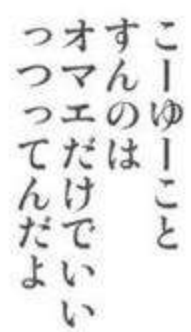 こーゆーこと
すんのは
オマエだけでいい
っつってんだよ